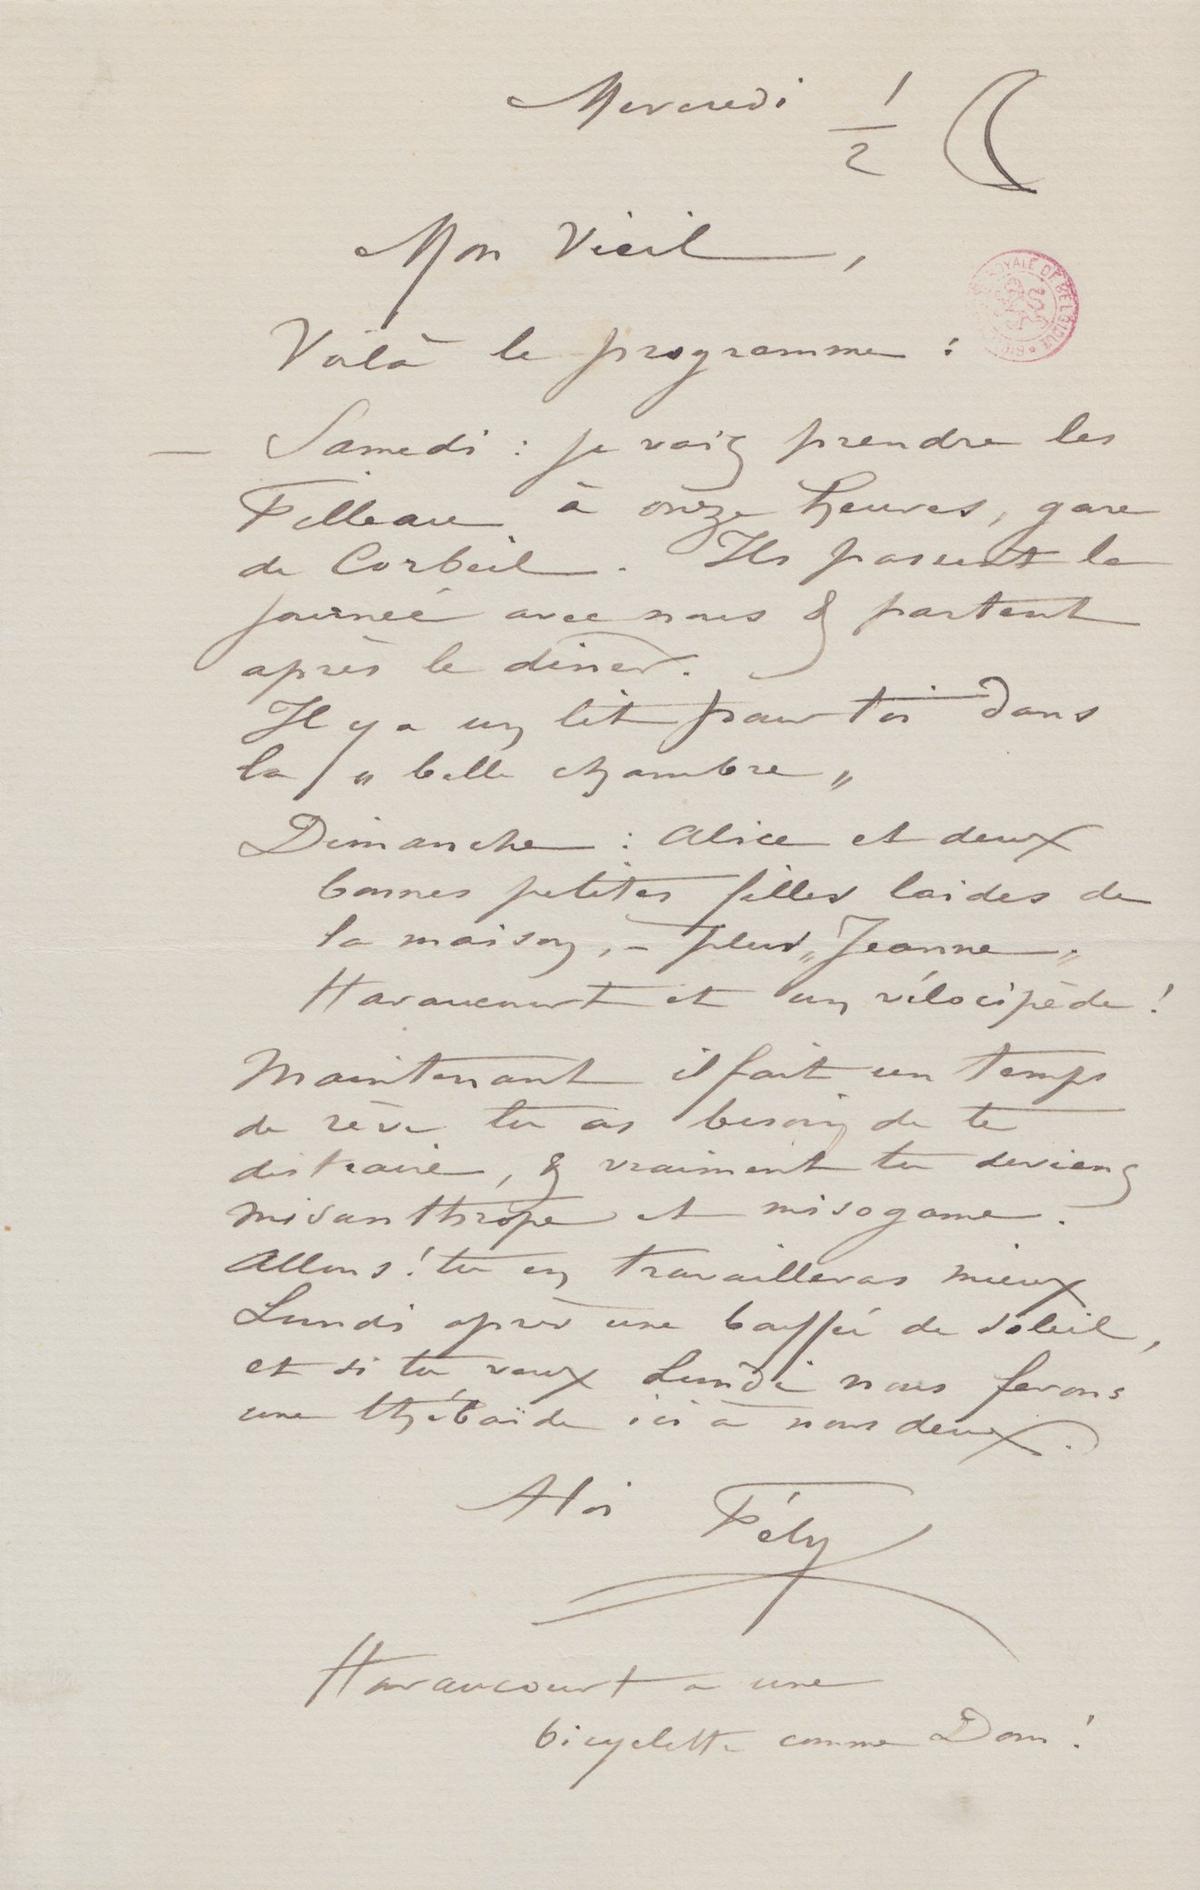 Mercredi 1/2
Mon Vieil,
Voilà le programme :
— Samedi : je vais prendre les
Filleau à onze heures, gare
de Corbeil. Ils passent la
journée avec nous & partent
après le dîner.
Il y a un lit pour toi dans
la „ belle chambre „
Dimanche : Alice et deux
bonnes petites filles laides de
la maison, – plus „Jeanne„
Haraucourt et un vélocipède !
Maintenant il fait un temps
de rève tu as besoin de te
distraire, & vraiment tu deviens
misanthrope et misogame.
Allons ! tu en travailleras mieux
Lundi après une bouffée de soleil,
et si tu veux Lundi nous ferons
une thébaïde ici à nous deux.
A toi Fély
Haraucourt a une
bicyclette comme Dom !
ROYALE DE BELGIQUE